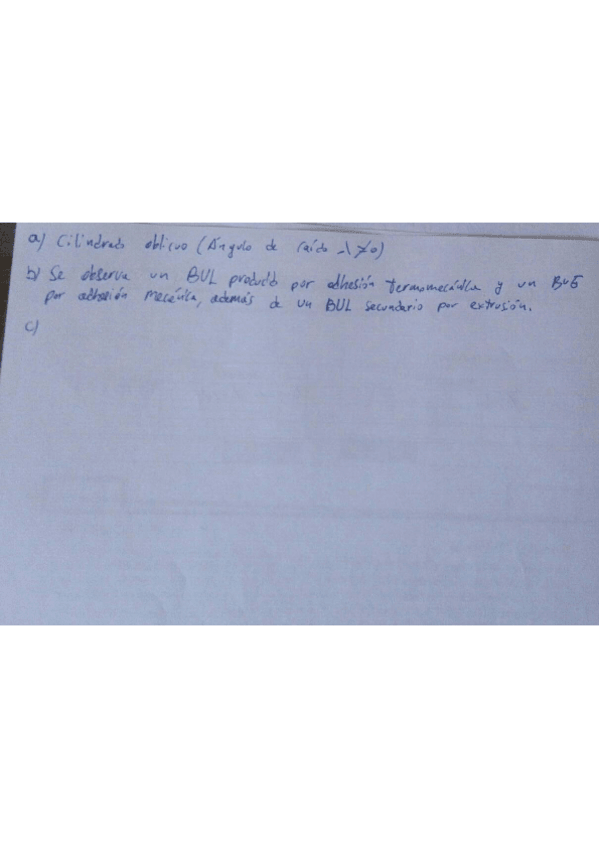 a) Cilindrado oblicuo (Ángulo de caída λ≠0)
b) Se observa un BUL producido por adhesión termomecánica y un BUE
por adhesión mecánica, además de un BUL secundario por extrusión.
c)